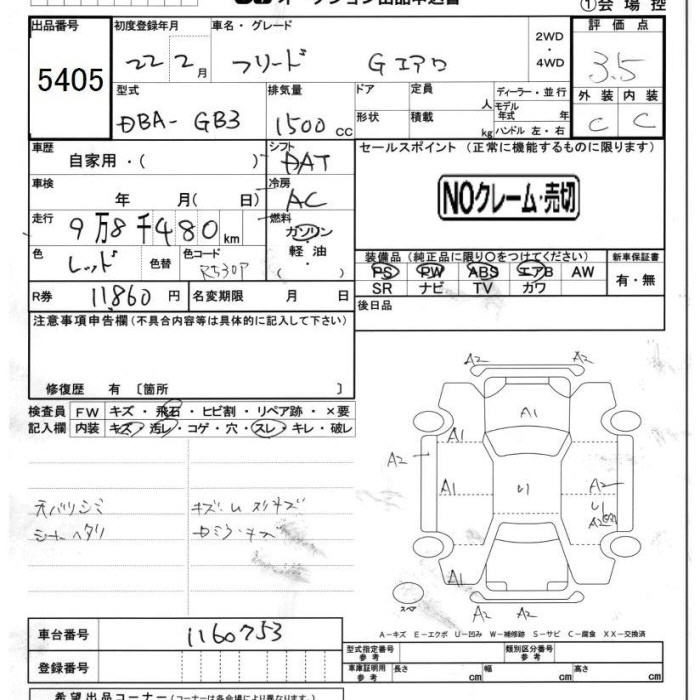 オークション出品申込書
①会場控
出品番号
5405
初度登録年月
車名・グレード
22 2月
フリード
Gエアロ
2WD
・
4WD
評価点
3.5
外装 内装
C C
型式
DBA- GB3
排気量
1500 CC
ドア
定員
人
形状
積載
kg
ディーラー・並行
モデル
年式 年
ハンドル 左・右
車歴
自家用・( )
シフト
DAT
セールスポイント (正常に機能するものに限ります)
NOクレーム・売切
車検
年 月( 日)
冷房
AC
走行
9万8千480km
燃料
ガソリン
軽油
・
( )
色
レッド
色替
色コード
R530P
装備品(純正品に限り〇をつけてください)
PS PW ABS エアB AW
SR ナビ TV カワ
新車保証書
有・無
R券
11860円
名変期限 月 日
後日品
注意事項申告欄(不具合内容等は具体的に記入して下さい)
修復歴 有 〔箇所 〕
検査員
記入欄
FW キズ・飛石・ヒビ割・リペア跡・×要
内装 キズ・汚レ・コゲ・穴・スレ・キレ・破レ
天バリシミ
シートヘタリ
キズ・ム スリキズ
A2 A2
A1
A1
A2
A1
U1
A2
U1
A2
A1
A2 A2
スペア
A-キズ E-エクボ U-凹み W-補修跡 S-サビ C-腐食 XX-交換済
車台番号
1160753
登録番号
型式指定番号
参考
類別区分番号
参考
車庫証明用
参考
長さ cm
幅 cm
高さ cm
希望出品コーナー(コーナーは各会場により異なります)